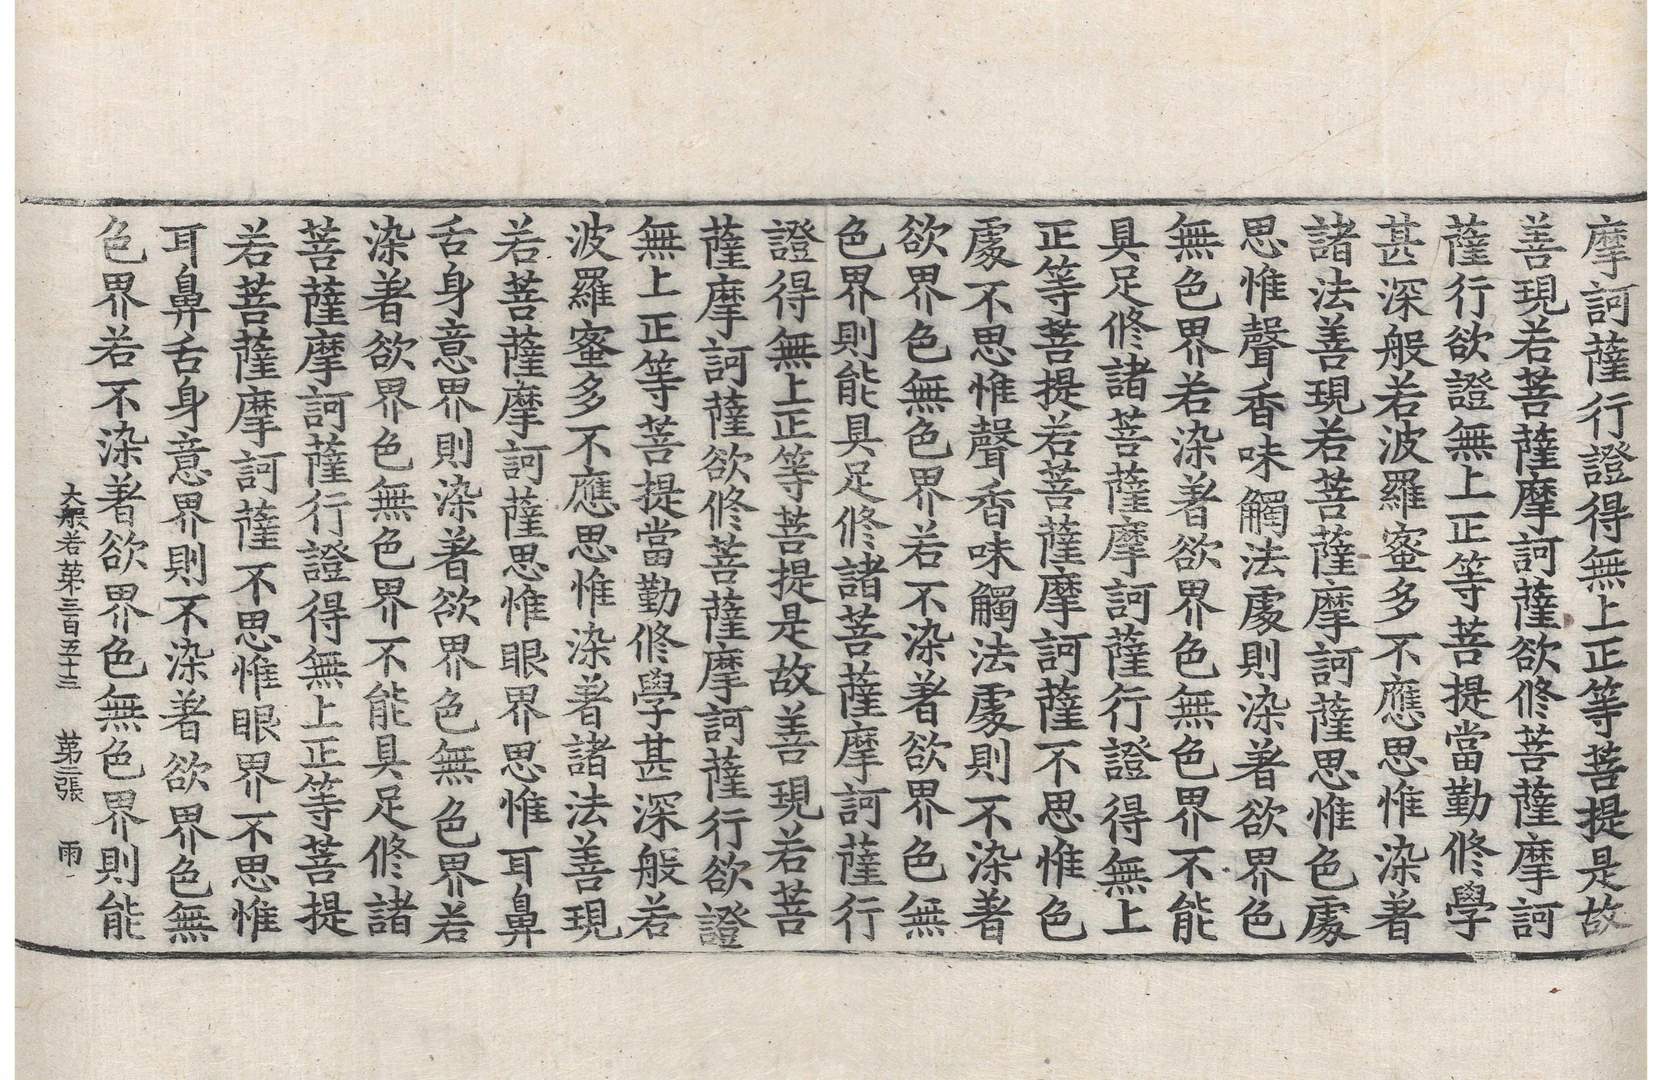 摩訶薩行證得無上正等菩提是故
善現若菩薩摩訶薩欲修菩薩摩訶
薩行欲證無上正等菩提當勤修學
甚深般若波羅蜜多不應思惟染著
諸法善現若菩薩摩訶薩思惟色處
思惟聲香味觸法處則染著欲界色
無色界若染著欲界色無色界不能
具足修諸菩薩摩訶薩行證得無上
正等菩提若菩薩摩訶薩不思惟色
處不思惟聲香味觸法處則不染著
欲界色無色界若不染著欲界色無
色界則能具足修諸菩薩摩訶薩行
證得無上正等菩提是故善現若菩
薩摩訶薩欲修菩薩摩訶薩行欲證
無上正等菩提當勤修學甚深般若
波羅蜜多不應思惟染著諸法善現
若菩薩摩訶薩思惟眼界思惟耳鼻
舌身意界則染著欲界色無色界若
染著欲界色無色界不能具足修諸
菩薩摩訶薩行證得無上正等菩提
若菩薩摩訶薩不思惟眼界不思惟
耳鼻舌身意界則不染著欲界色無
色界若不染著欲界色無色界則能
大般若第三百五十三 第二張 雨